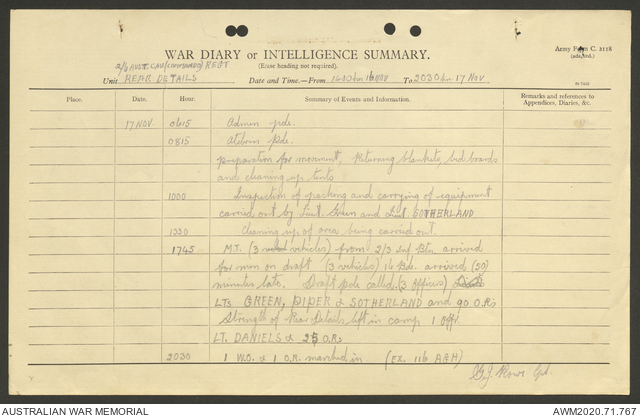 WAR DIARY or INTELLIGENCE SUMMARY.
(Erase heading not required).
Army Form C. 2118
2/6 AUST. CAV (COMMANDO) REGT
Unit REAR DETAILS Date and Time.—From 1600 hr 16 NOV To 2030 hr 17 NOV
Place. Date. Hour. Summary of Events and Information. Remarks and references to Appendices, Diaries, &c.
17 NOV 0615 Admin pde.
0815 Atebrin Pde.
preparation for movement, Returning blankets, bed boards
and cleaning up tents
1000 Inspection of packing and carrying of equipment
carried out by Lieut. Green and Lieut. SOTHERLAND
1330 Cleaning up of area being carried out.
1745 M.T. (3 vehicles) from 2/3 Inf Btn arrived
for men on draft (3 vehicles) 16 Bde. arrived (30)
minutes late. Draft pde called. (3 officers)
LTS GREEN, PIPER & SOTHERLAND and 90 O.Rs
Strength of Rear Details left in camp 1 Offr.
LT. DANIELS & 25 O.Rs
2030 1 W.O. & 1 O.R. marched in (Ex. 116 AGH)
Rowe Cpt.
AUSTRALIAN WAR MEMORIAL AWM2020.71.767